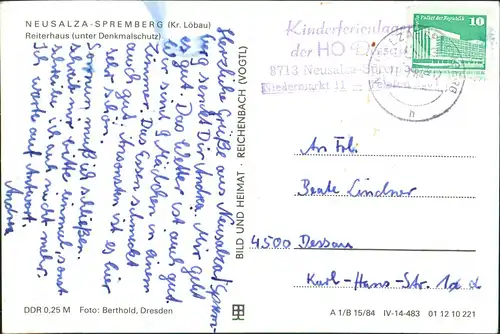 NEUSALZA-SPREMBERG (Kr. Löbau)
Reiterhaus (unter Denkmalschutz)
Herzliche Grüße aus Neusalza/Sprem-
berg sendet Dir Andrea. Mir geht
es gut. Das Wetter ist auch gut.
Wir sind Mädchen in einem
Zimmer. Das Essen schmeckt
auch gut. Ansonsten ist es hier
sehr schön.
So nun muß ich schließen.
Schreib mir bitte einmal, sonst
schreibe ich auch nicht mehr.
Ich warte auf Antwort.
Andrea
BILD UND HEIMAT · REICHENBACH (VOGTL)
Kinderferienlager
der HO
8713 Neusalza-Spremberg
Niedermarkt 11
Palast der Republik
10
DDR
An Frl.
Beate Lindner
4500 Dessau
Karl-Hans-Str.
DDR 0,25 M Foto: Berthold, Dresden
A 1/B 15/84 IV-14-483 01 12 10 221